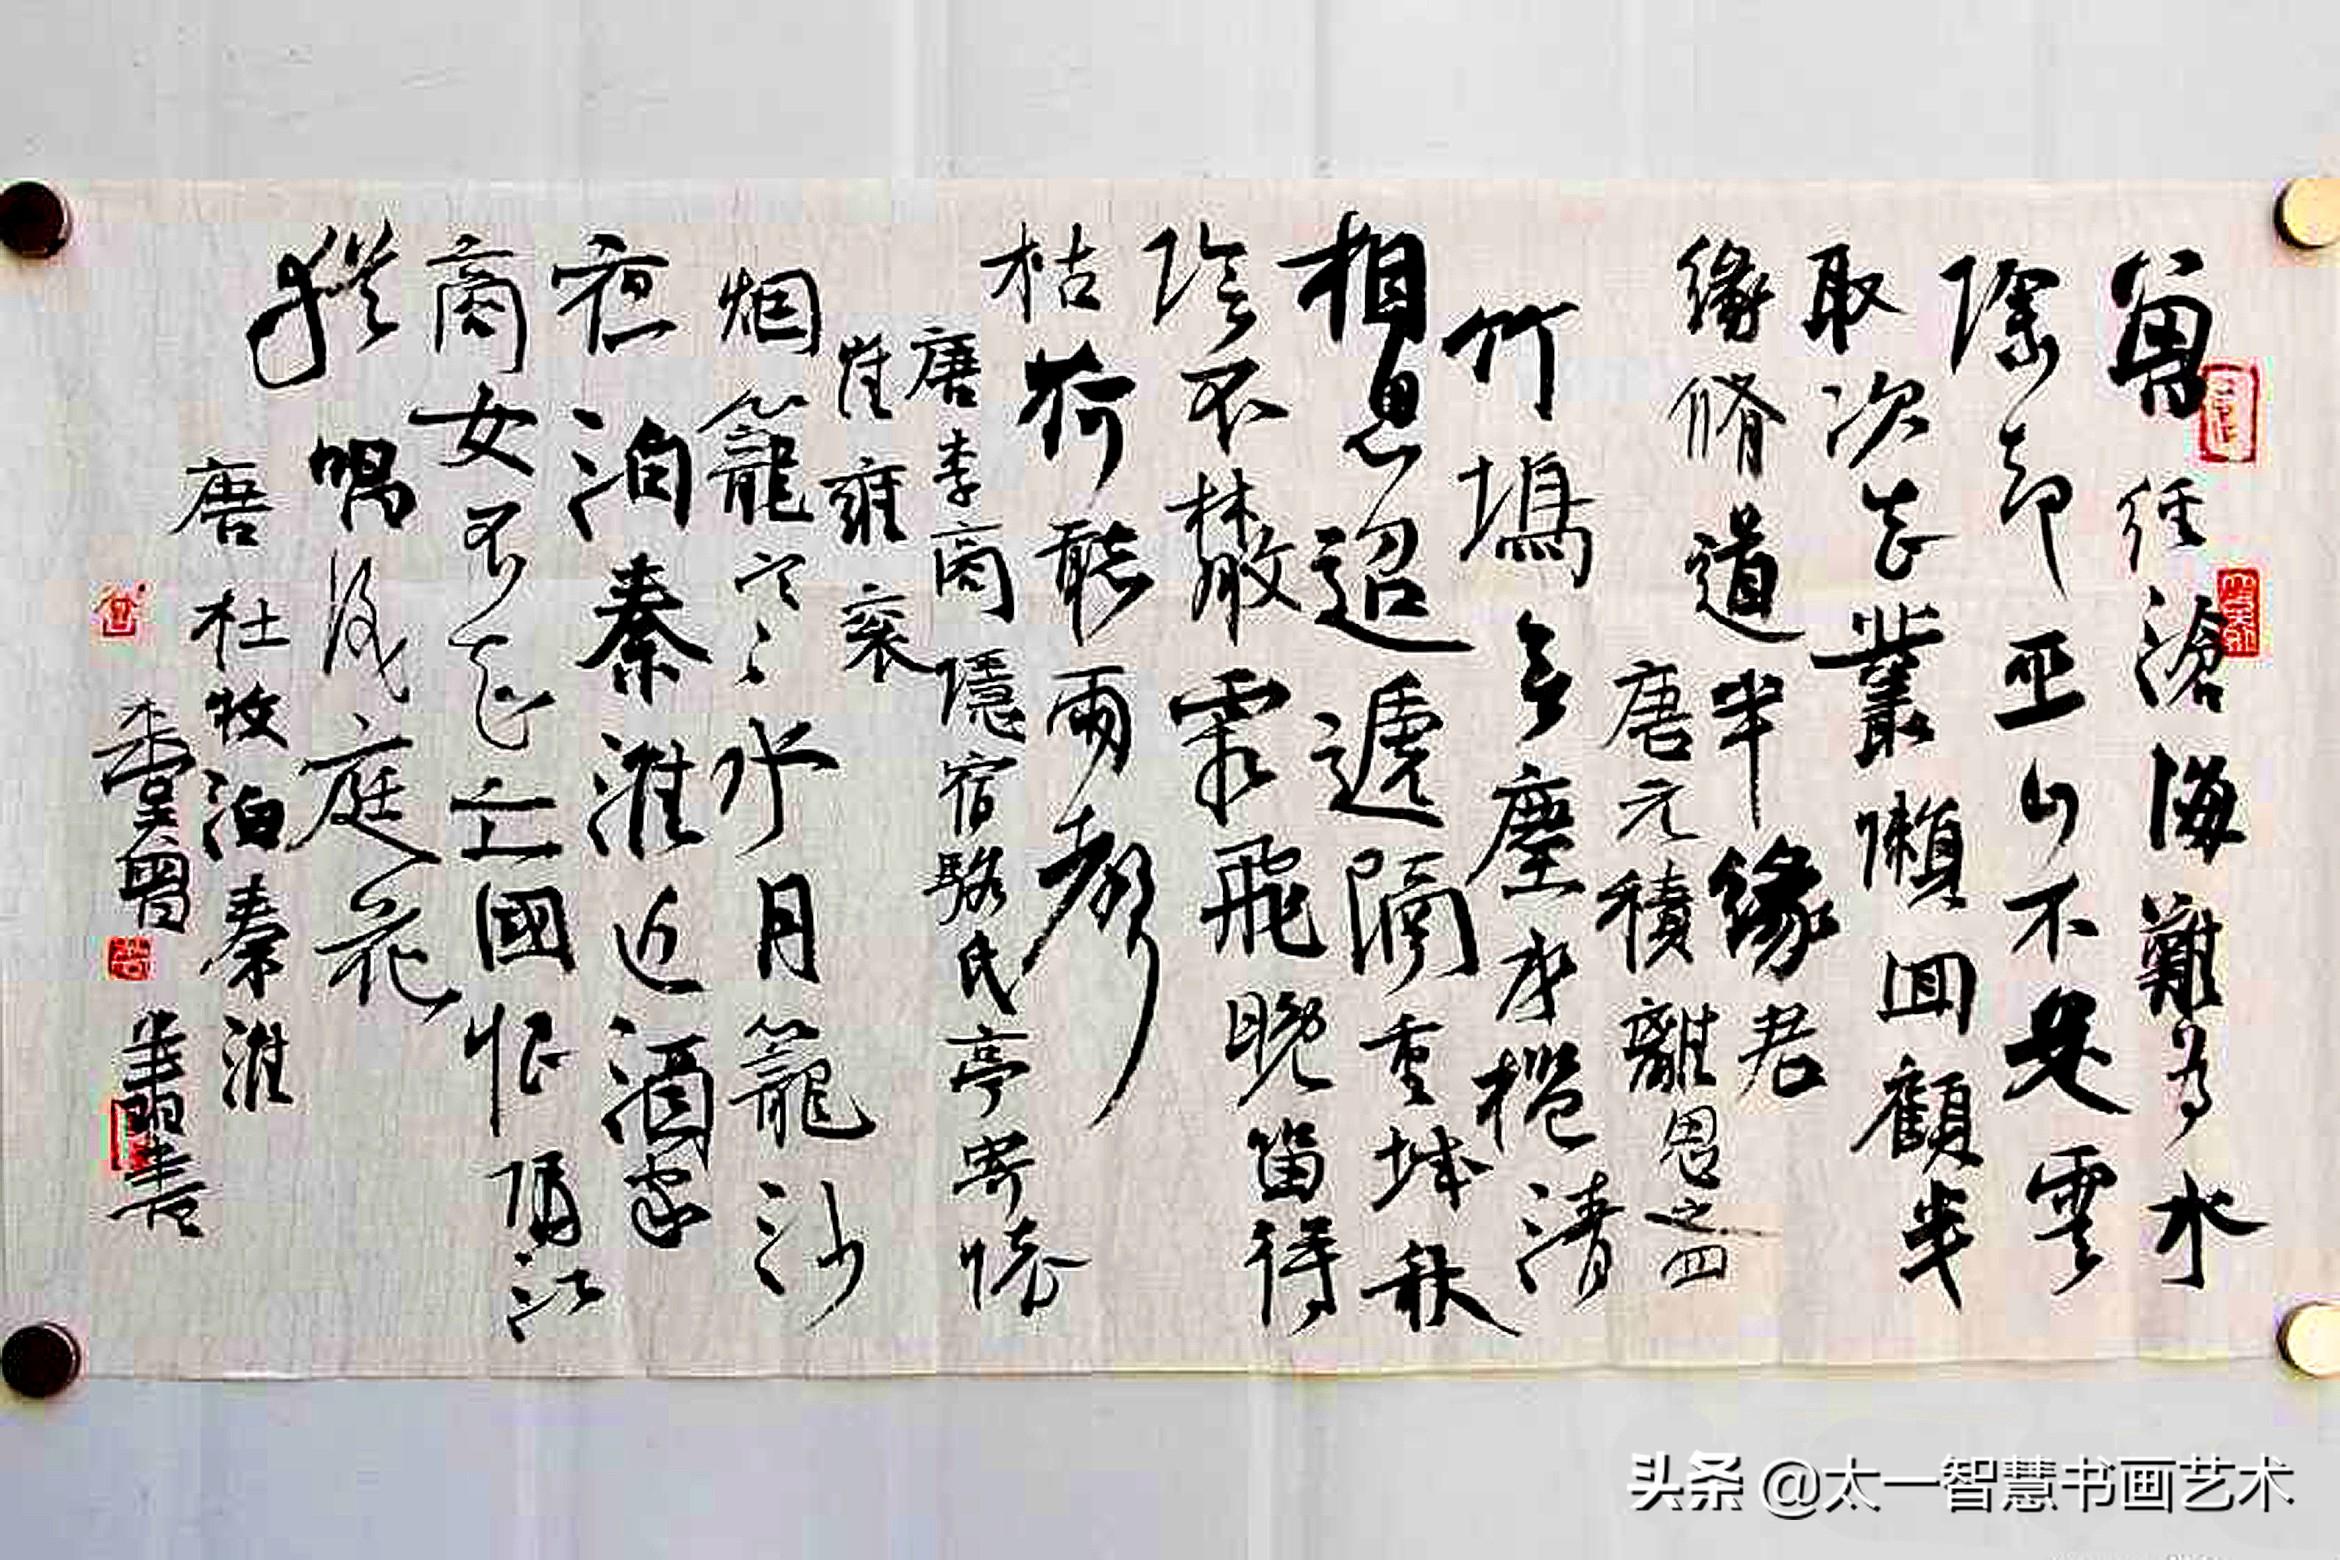 曾經滄海難為水
除却巫山不是雲
取次花叢懶回顧半
緣修道半緣君
唐元積離思之四
竹塢無塵水檻清
相思迢遞隔重城秋
陰不散霜飛晚留得
枯荷聽雨聲
唐李商隱宿駱氏亭寄懷
崔雍衮
烟籠寒水月籠沙
夜泊秦淮近酒家
商女不知亡國恨隔江
猶唱後庭花
唐杜牧泊秦淮
書
头条 @太一智慧书画艺术